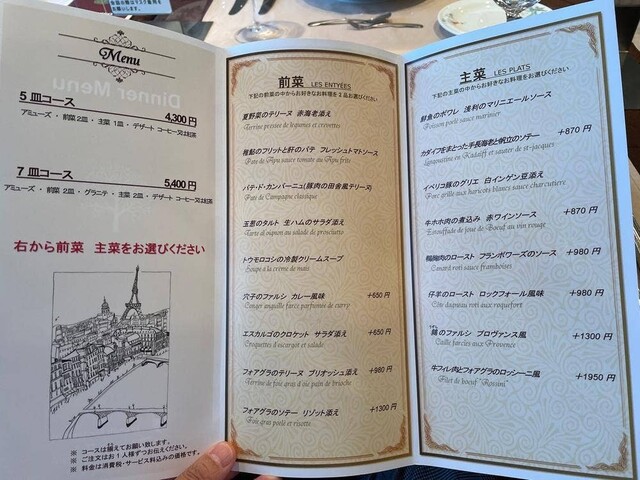 Menu
5 皿コース
4,300円
アミューズ ・ 前菜2皿 ・ 主菜 1皿 ・ デザート コーヒー又は紅茶
7 皿コース
5,400円
アミューズ ・ 前菜 2皿 ・ グラニテ ・ 主菜 2皿 ・ デザート コーヒー又は紅茶
右から前菜 主菜をお選びください
※ コースは揃えてお願い致します。
※ ご注文はお1人様ずつお伝えください。
※ 料金は消費税・サービス料込みの価格です。
前菜 LES ENTYÉES
下記の前菜の中からお好きなお料理を2品お選びください
夏野菜のテリーヌ 赤海老添え
Terrine pressee de legumes et crevettes
稚鮎のフリットと肝のパテ フレッシュトマトソース
Pate de Ayu sauce tomate au Ayu frits
パテ・ド・カンパーニュ(豚肉の田舎風テリーヌ)
Pate de Campagne classique
玉葱のタルト 生ハムのサラダ添え
Tarte d'oignon au salade de prosciutto
トウモロコシの冷製クリームスープ
Soupe a la crème de mais
穴子のファルシ カレー風味 +650 円
Conger anguille farce parfumée de curry
エスカルゴのクロケット サラダ添え +650 円
Croquettes d'escargot et salade
フォアグラのテリーヌ ブリオッシュ添え +980 円
Terrine de foie gras d'oie pain de brioche
フォアグラのソテー リゾット添え +1300 円
Foie gras poele et risotto
主菜 LES PLATS
下記の主菜の中からお好きなお料理をお選びください
鮮魚のポワレ 浅利のマリニエールソース
Poisson poele sauce mariniere
カダイフをまとった手長海老と帆立のソテー +870 円
Langoustina en Kadaiff et sauter de st-jacques
イベリコ豚のグリエ 白インゲン豆添え
Porc grille aux haricots blancs sauce charcutiere
牛ホホ肉の煮込み 赤ワインソース +870 円
Etouffade de joue de Boeuf au vin rouge
鴨胸肉のロースト フランボワーズのソース +980 円
Canard roti sauce framboises
仔羊のロースト ロックフォール風味 +980 円
Côte dagneau roti aux roquefort
鶉のファルシ プロヴァンス風 +1300 円
Caille farcies aux Provence
牛フィレ肉とフォアグラのロッシーニ風 +1950 円
Filet de boeuf "Rossini"